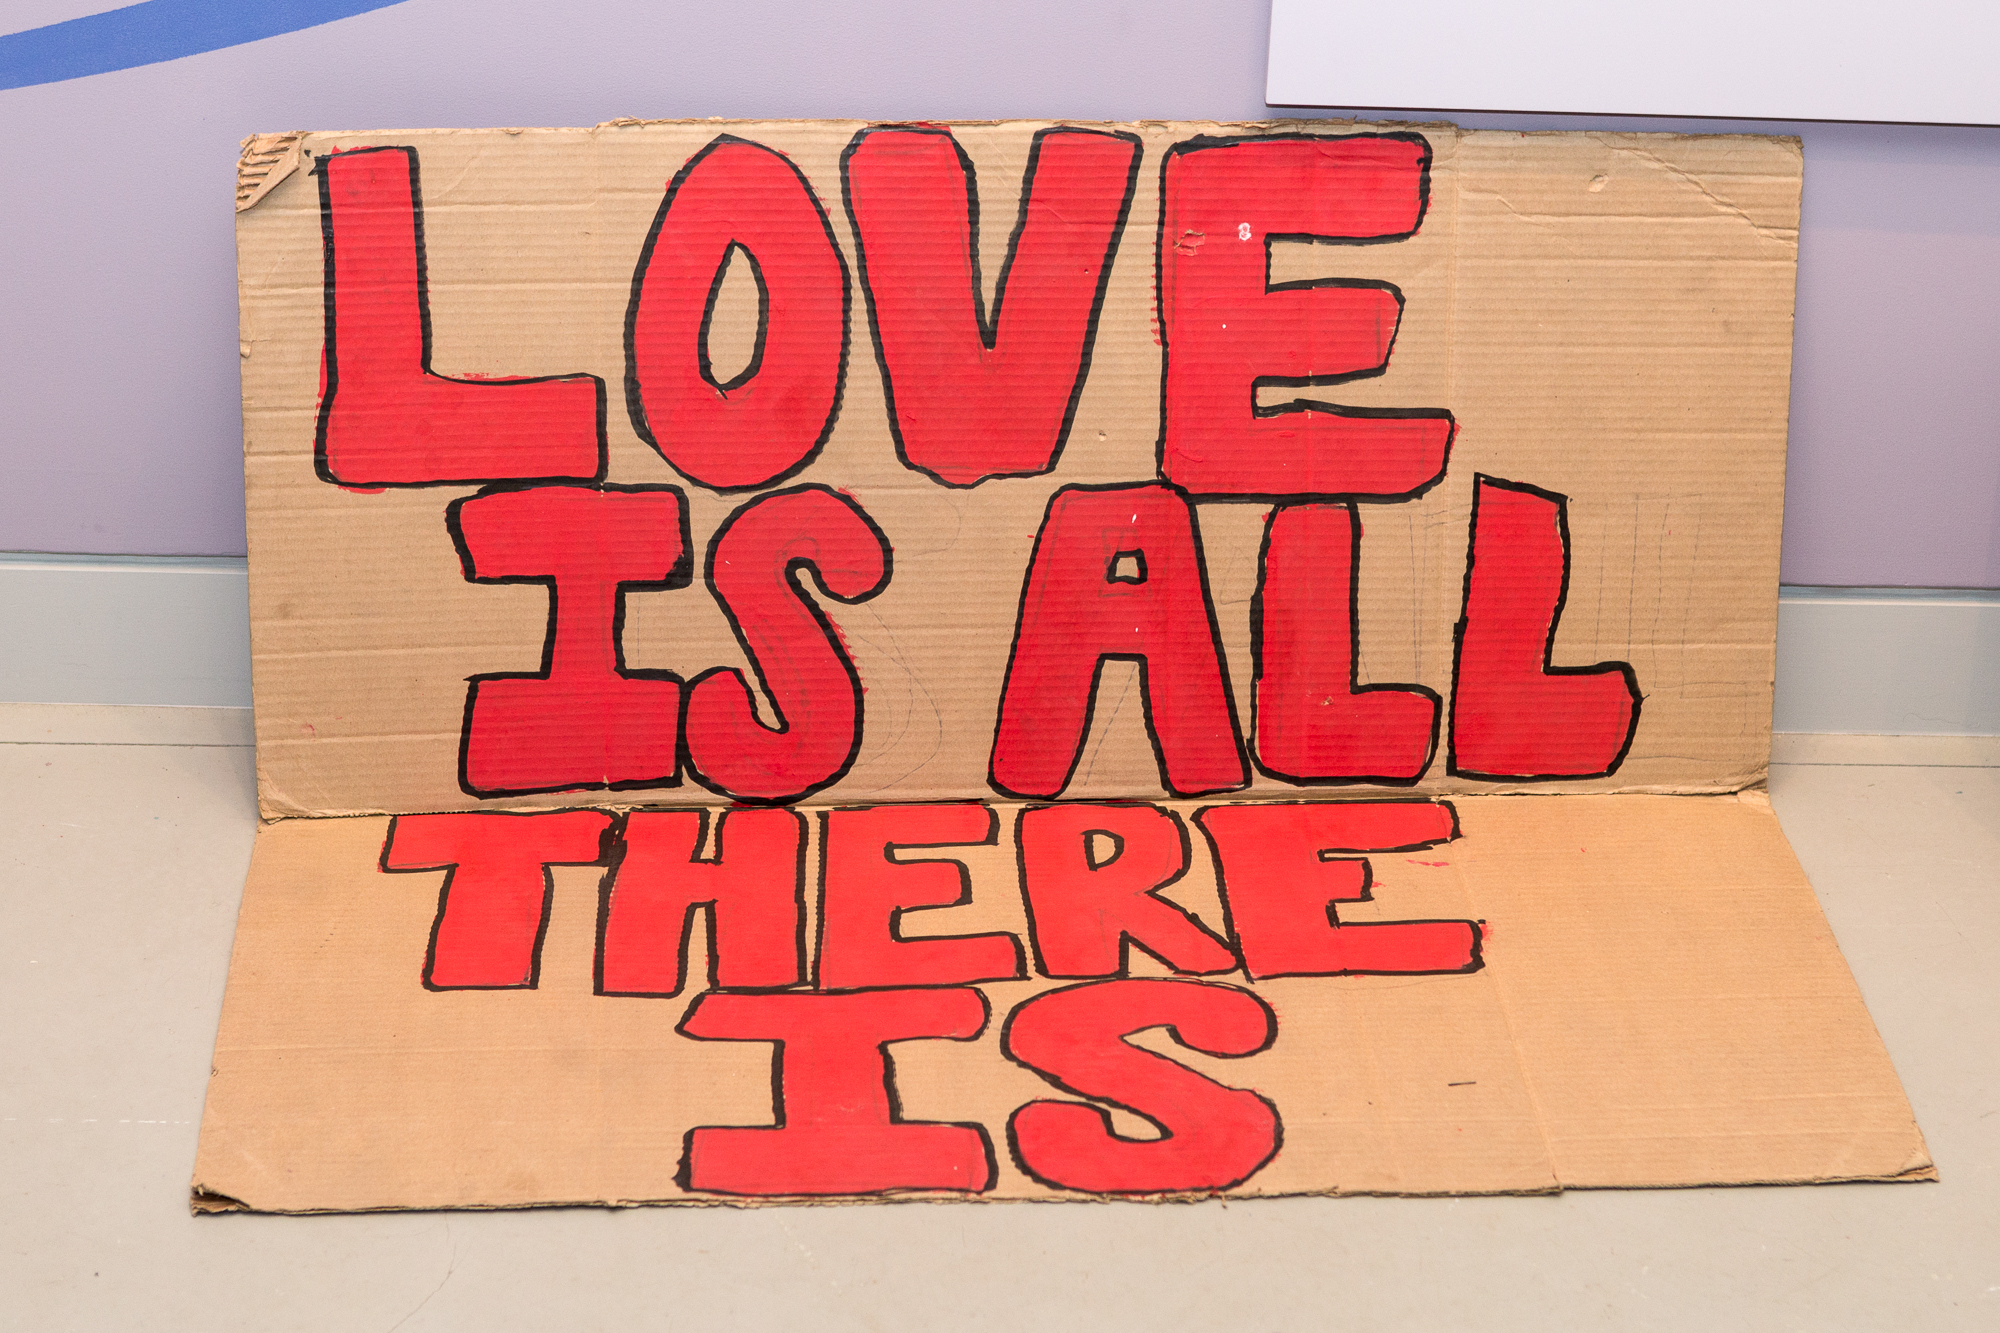 LOVE
IS ALL
THERE
IS